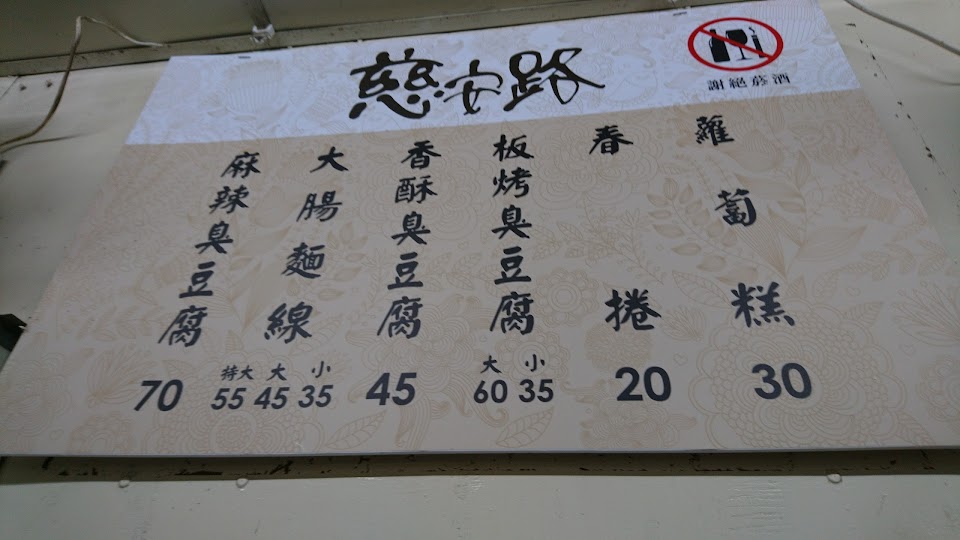 慈安路
謝絕菸酒
蘿蔔糕
30
春捲
20
板烤臭豆腐
大 小
60 35
香酥臭豆腐
45
大腸麵線
特大 大 小
55 45 35
麻辣臭豆腐
70